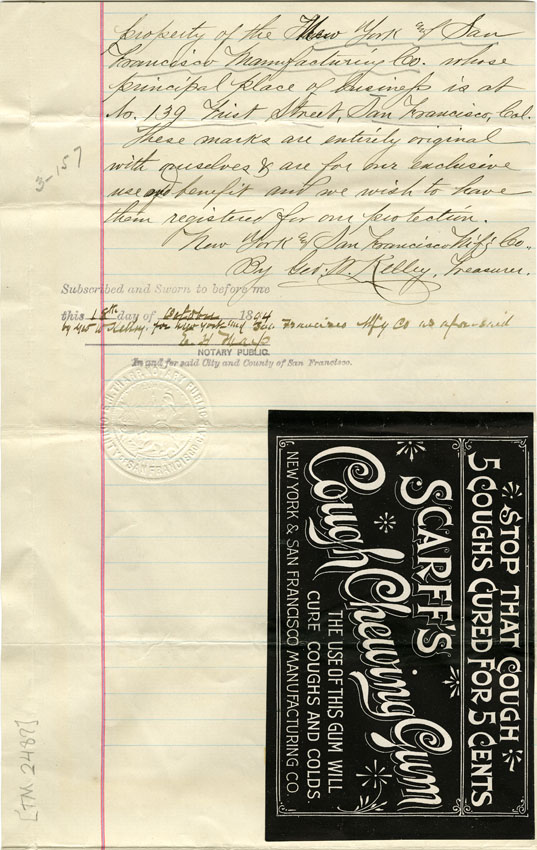 property of the New York & San
Francisco Manufacturing Co. whose
principal place of business is at
No. 139 First Street, San Francisco, Cal.
These marks are entirely original
with ourselves & are for our exclusive
use and benefit and we wish to have
them registered for our protection.
New York & San Francisco M'f'g Co.
By Geo. W. Kelley, Treasurer.
3-157
Subscribed and Sworn to before me
this 18th day of October 1894
by Geo W Kelley for New York and San Francisco Mfg Co as aforesaid
NOTARY PUBLIC.
In and for said City and County of San Francisco.
NOTARY PUBLIC
SAN FRANCISCO
STOP THAT COUGH
5 COUGHS CURED FOR 5 CENTS
SCARFF'S
Cough Chewing Gum
THE USE OF THIS GUM WILL
CURE COUGHS AND COLDS.
NEW YORK & SAN FRANCISCO MANUFACTURING CO.
[TM 2482]